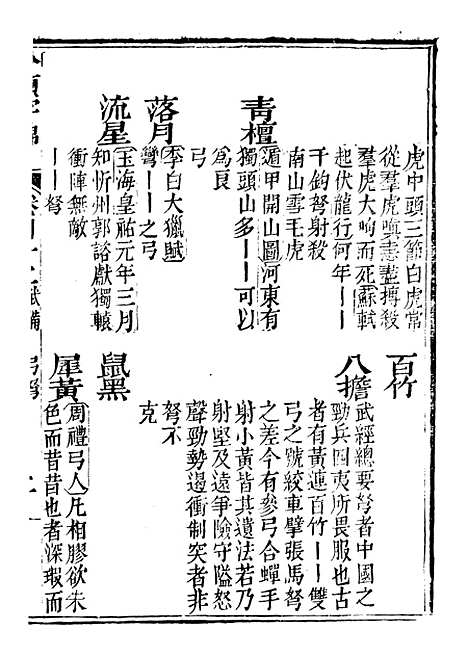 虎中頭三節白虎常
從羣虎嗔恚盡搏殺
羣虎大呴而死蘇軾
起伏龍行何年丨丨
千鈞弩射殺
南山雪毛虎
青檀
遁甲開山圖河東有
獨頭山多丨丨可以
爲良
弓
落月
李白大獵賦
彎丨丨之弓
流星
玉海皇祐元年三月
知忻州郭諮獻獨轅
衝陣無敵
丨丨弩
百竹
八擔
武經總要弩者中國之
勁兵四夷所畏服也古
者有黃連百竹丨丨雙
弓之號絞車擘張馬弩
之差今有參弓合蟬手
射小黃皆其遺法若乃
射堅及遠爭險守隘怒
聲勁勢遏衝制突者非
弩不
克
鼠黑
犀黃
周禮弓人凡相膠欲朱
色而昔昔也者深瑕而
武備
弓弩
二